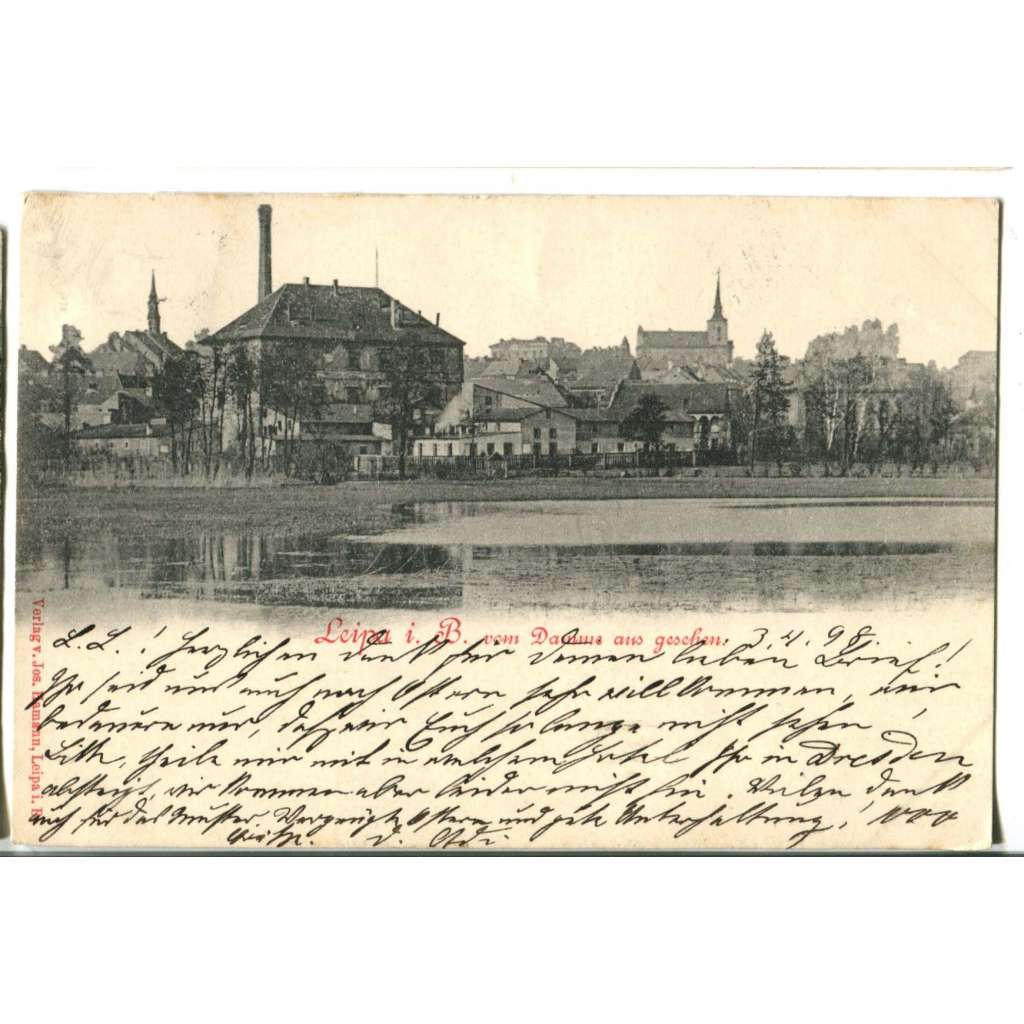 Leipa i. B. vom Damme aus gesehen.
3.4.98.
L. L.! Herzlichen Dank für Deinen lieben Brief!
Ihr seid uns auch nach Ostern sehr willkommen, wir
bedauern nur, daß wir Euch so lange nicht sehen!
Bitte, theile mir mit in welchem Hotel Ihr in Dresden
absteigt, wir kommen aber leider nicht hin. Vielen Dank
auch für das Muster. Vergnügte Ostern und gute Unterhaltung! 1000
d.
Verlag v. Jos. Hamann, Leipa i. B.